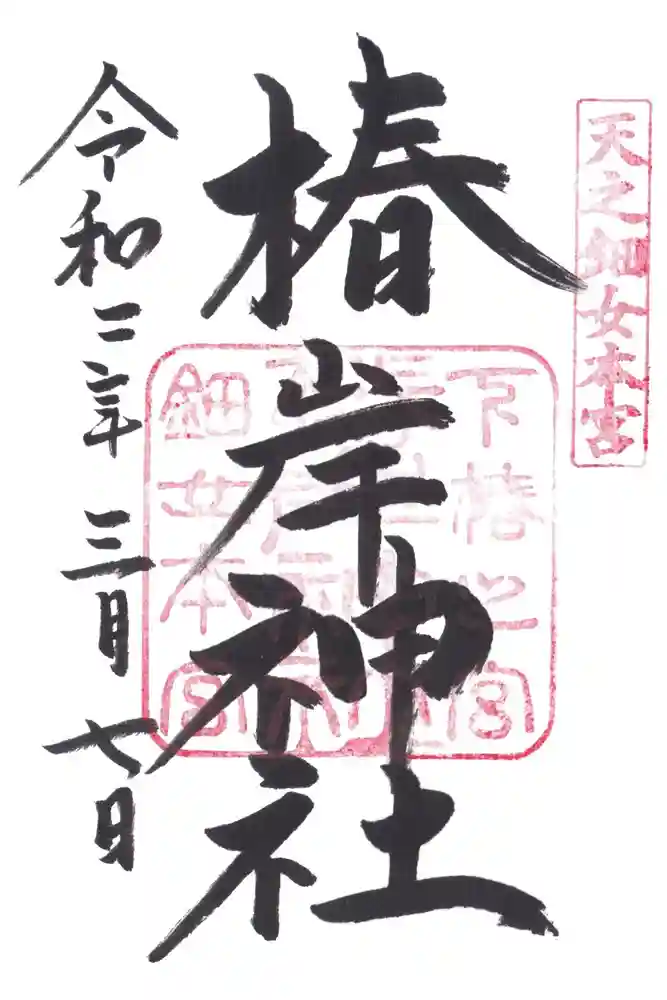 天之鈿女本宮
椿岸神社
下椿之宮
鈿女本宮
令和二年三月七日